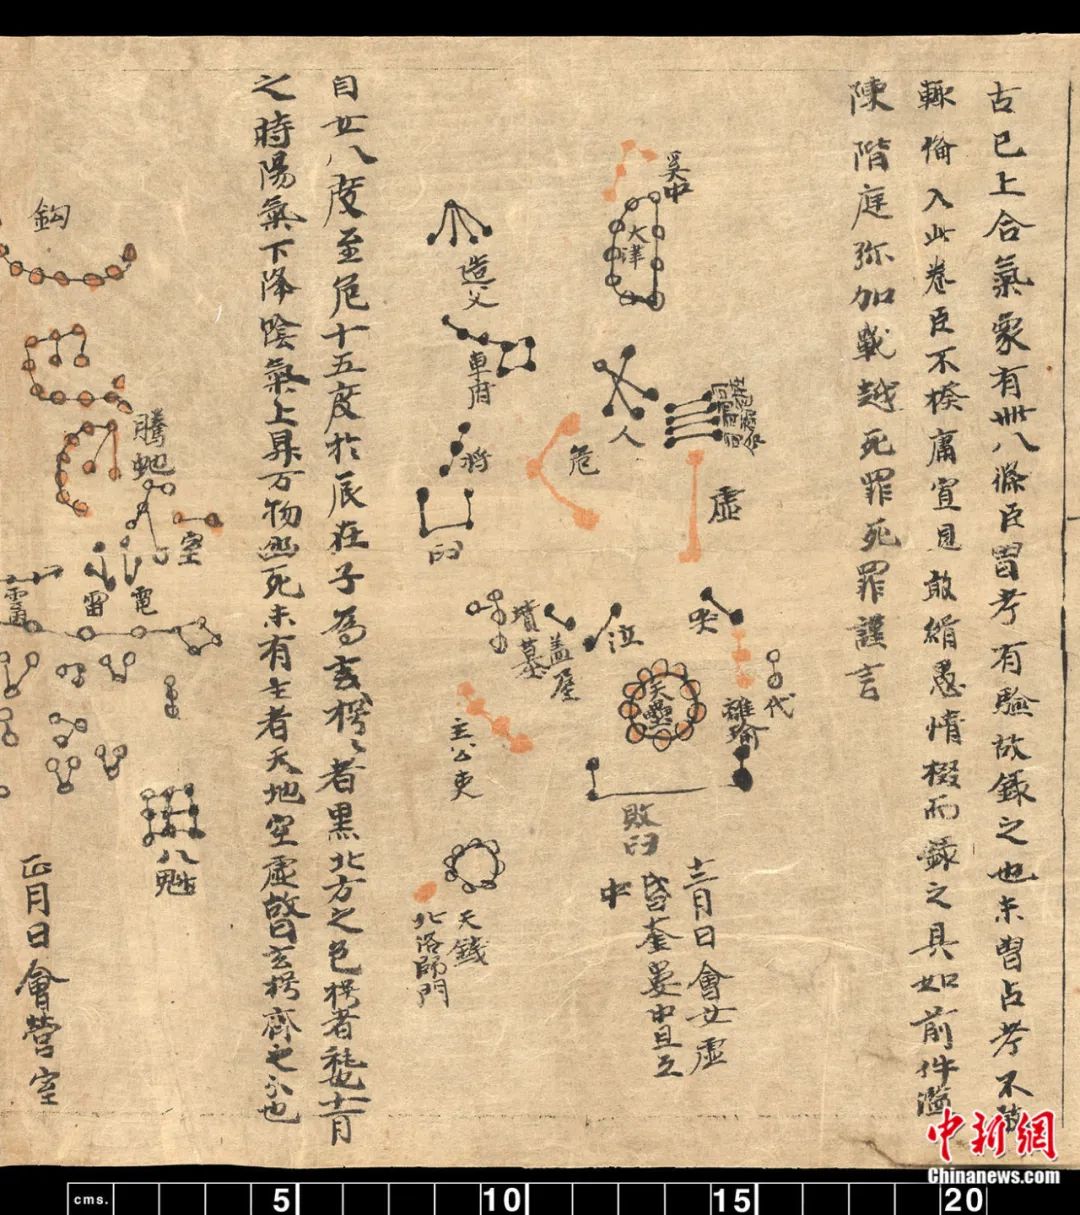 古已上合氣象有卌八條臣曾考有驗故錄之也未曾占考不敢
輒備入此卷臣不揆庸冥見敢緝愚情掇而錄之具如前件濫
陳階庭弥加戰越死罪死罪謹言
奚仲
天津
人
虛
危
哭
泣
代
離瑜
天壘
敗臼
蓋屋
墳墓
十二月日會女虛
昏奎婁中旦氐
中
造父
車府
杵
臼
主公吏
天錢
北落師門
自女八度至危十五度於辰在子為玄枵枵者黑北方之色枵者秏也十一月
之時陽氣下降陰氣上昇万物幽死未有生者天地空虛故曰玄枵齊之分也
鈎
騰蛇
室
電
雷
八魁
正月日會營室
中新網
Chinanews.com
cms.
5
10
15
20